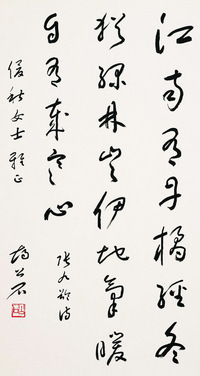 江南有丹橘經冬
猶綠林豈伊地氣暖
自有歲寒心
張九齡詩
女士雅正